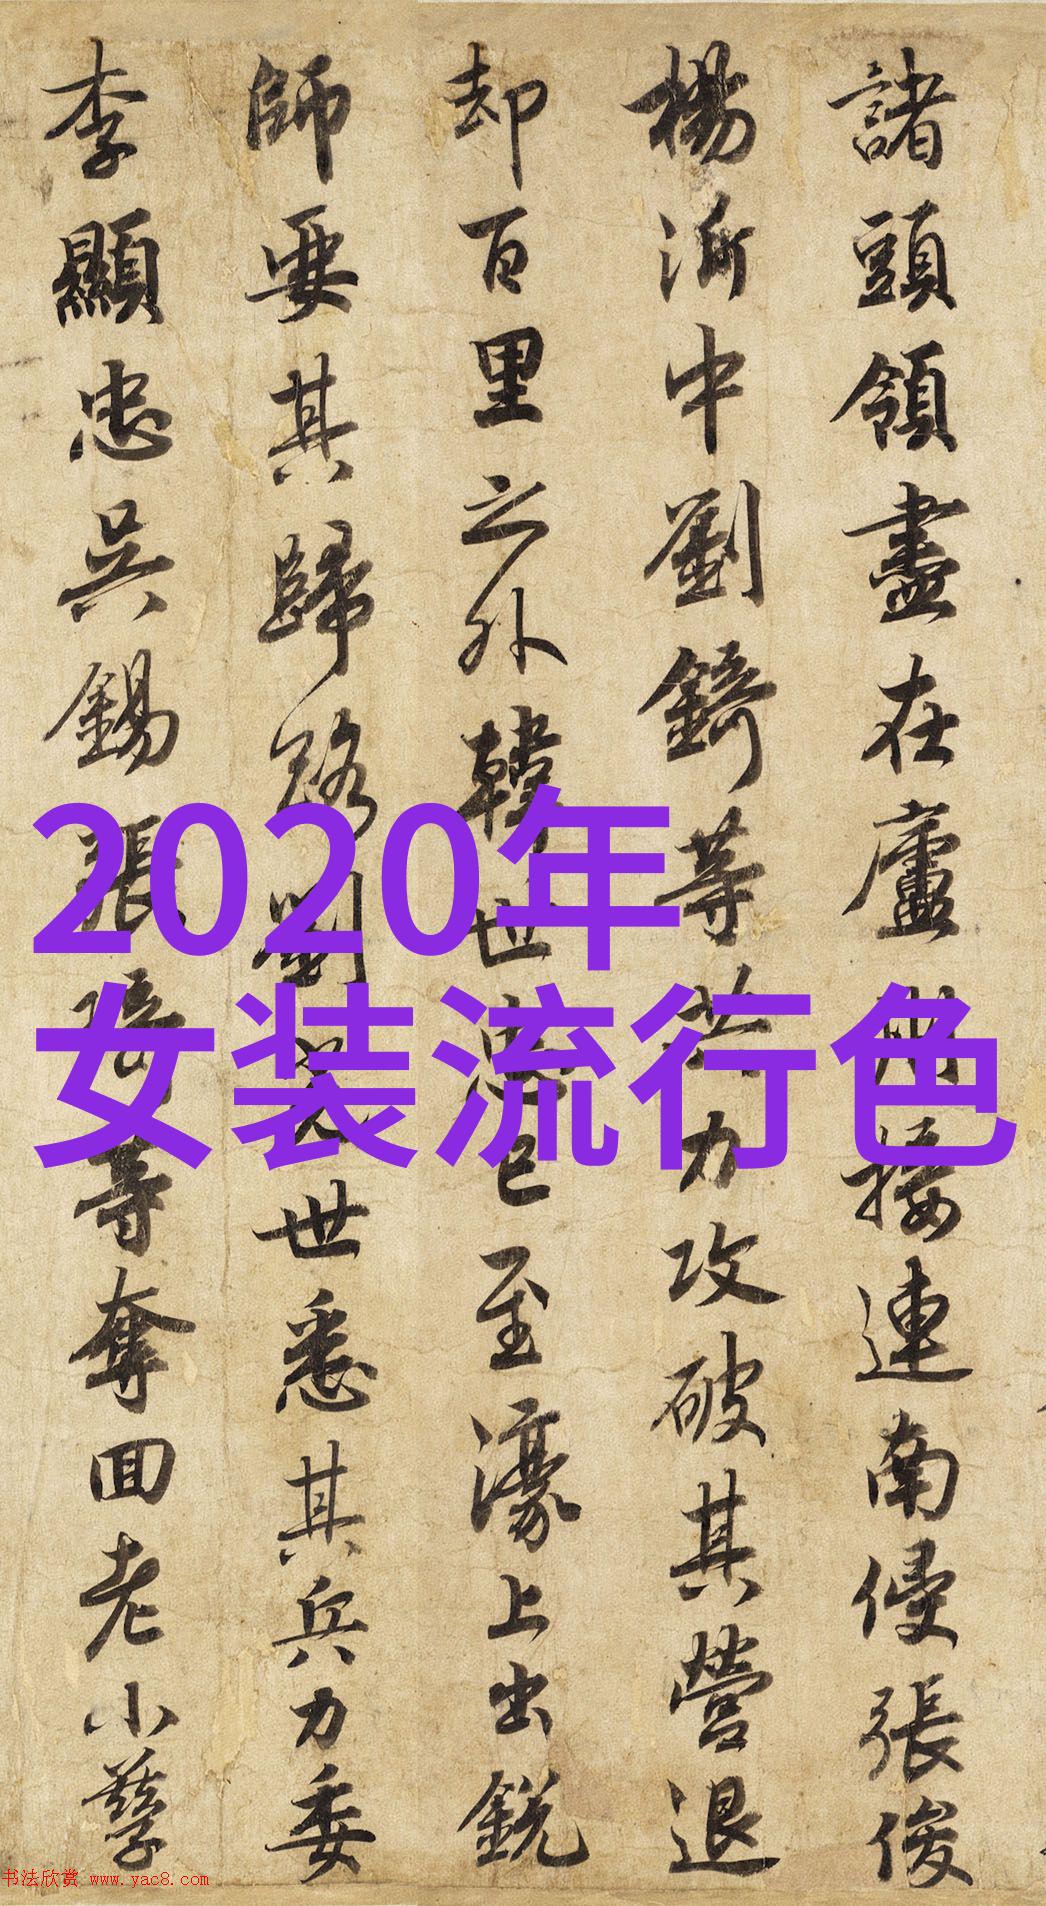 諸頭領盡在廬州接連南侵張俊
楊沂中劉錡等共力攻破其營退
却百里之外韓世忠已至濠上出銳
師要其歸路劉光世悉其兵力委
李顯忠吳錫張琦等奪回老小孳
2020年
女装流行色
书法欣赏 www.yac8.com